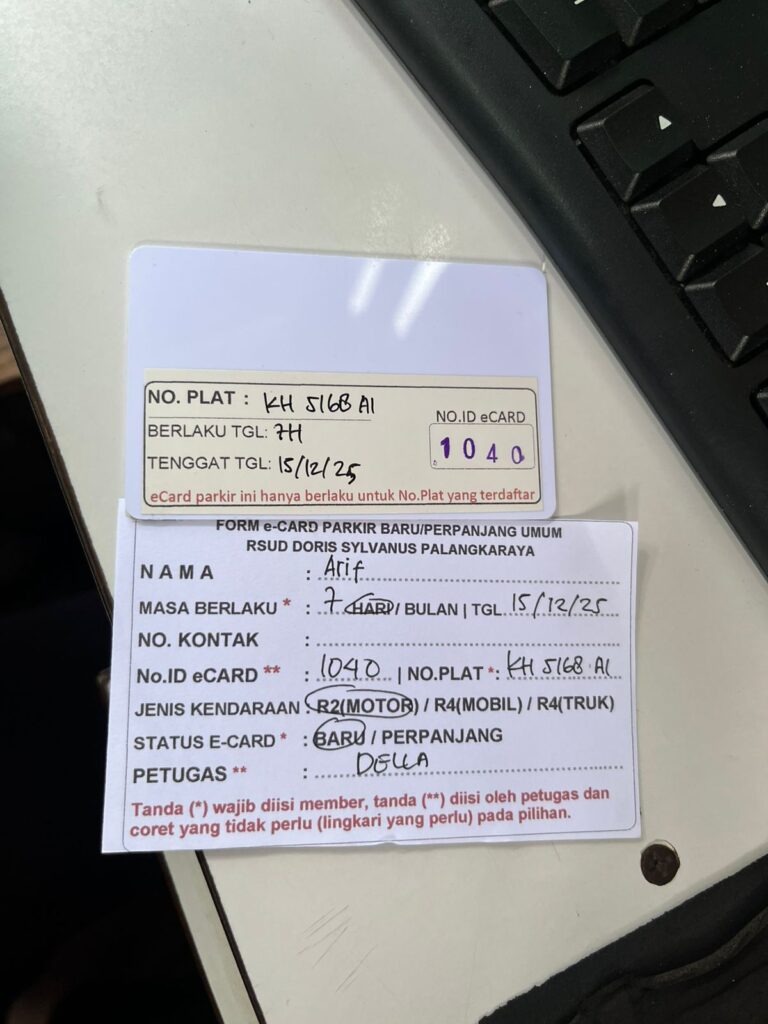 NO. PLAT : KH 5168 AI
BERLAKU TGL: 7H
TENGGAT TGL: 15/12/25
NO.ID eCARD
1040
eCard parkir ini hanya berlaku untuk No.Plat yang terdaftar
FORM e-CARD PARKIR BARU/PERPANJANG UMUM
RSUD DORIS SYLVANUS PALANGKARAYA
NAMA : Arif
MASA BERLAKU * : 7 HARI / BULAN | TGL 15/12/25
NO. KONTAK :
No.ID eCARD ** : 1040 | NO.PLAT *: KH 5168 AI
JENIS KENDARAAN : R2(MOTOR) / R4(MOBIL) / R4(TRUK)
STATUS E-CARD * : BARU / PERPANJANG
PETUGAS ** : DELLA
Tanda (*) wajib diisi member, tanda (**) diisi oleh petugas dan
coret yang tidak perlu (lingkari yang perlu) pada pilihan.